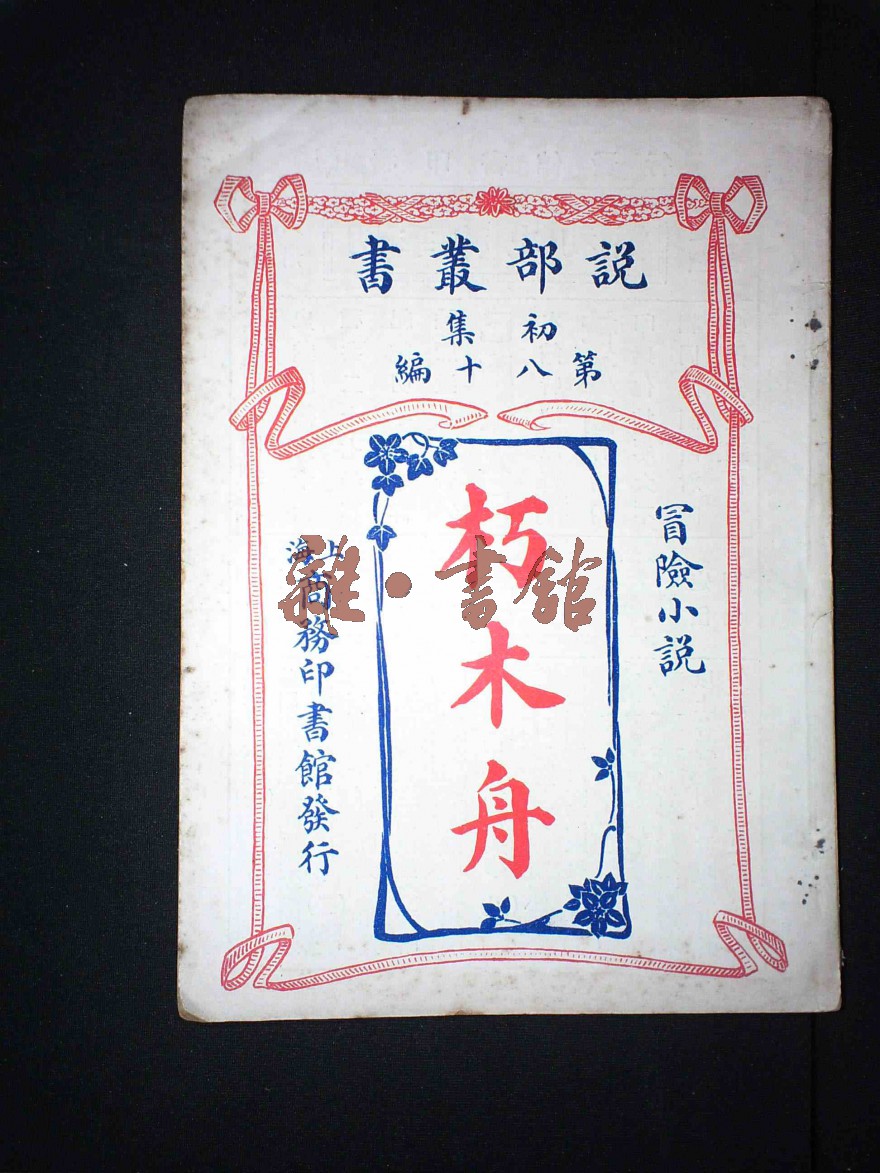 説部叢書
初集
第八十編
冒險小説
朽木舟
上海商務印書館發行
雜·書館